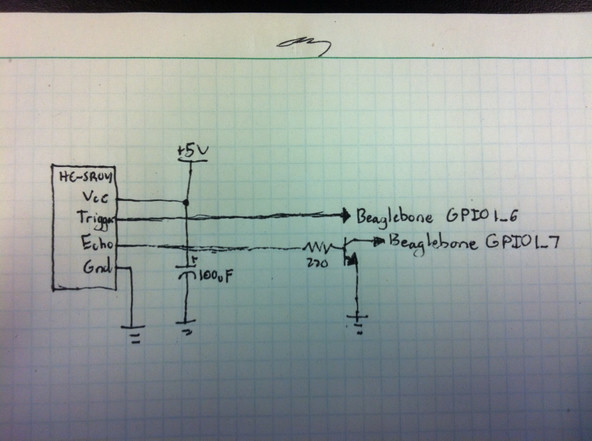 +5V
HC-SR04
Vcc
Trigger
Beaglebone GPIO1_6
Echo
220
Beaglebone GPIO1_7
Gnd
+
100uF